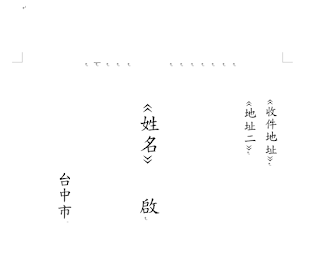 《收件地址》
《地址二》
《姓名》 啟
台中市